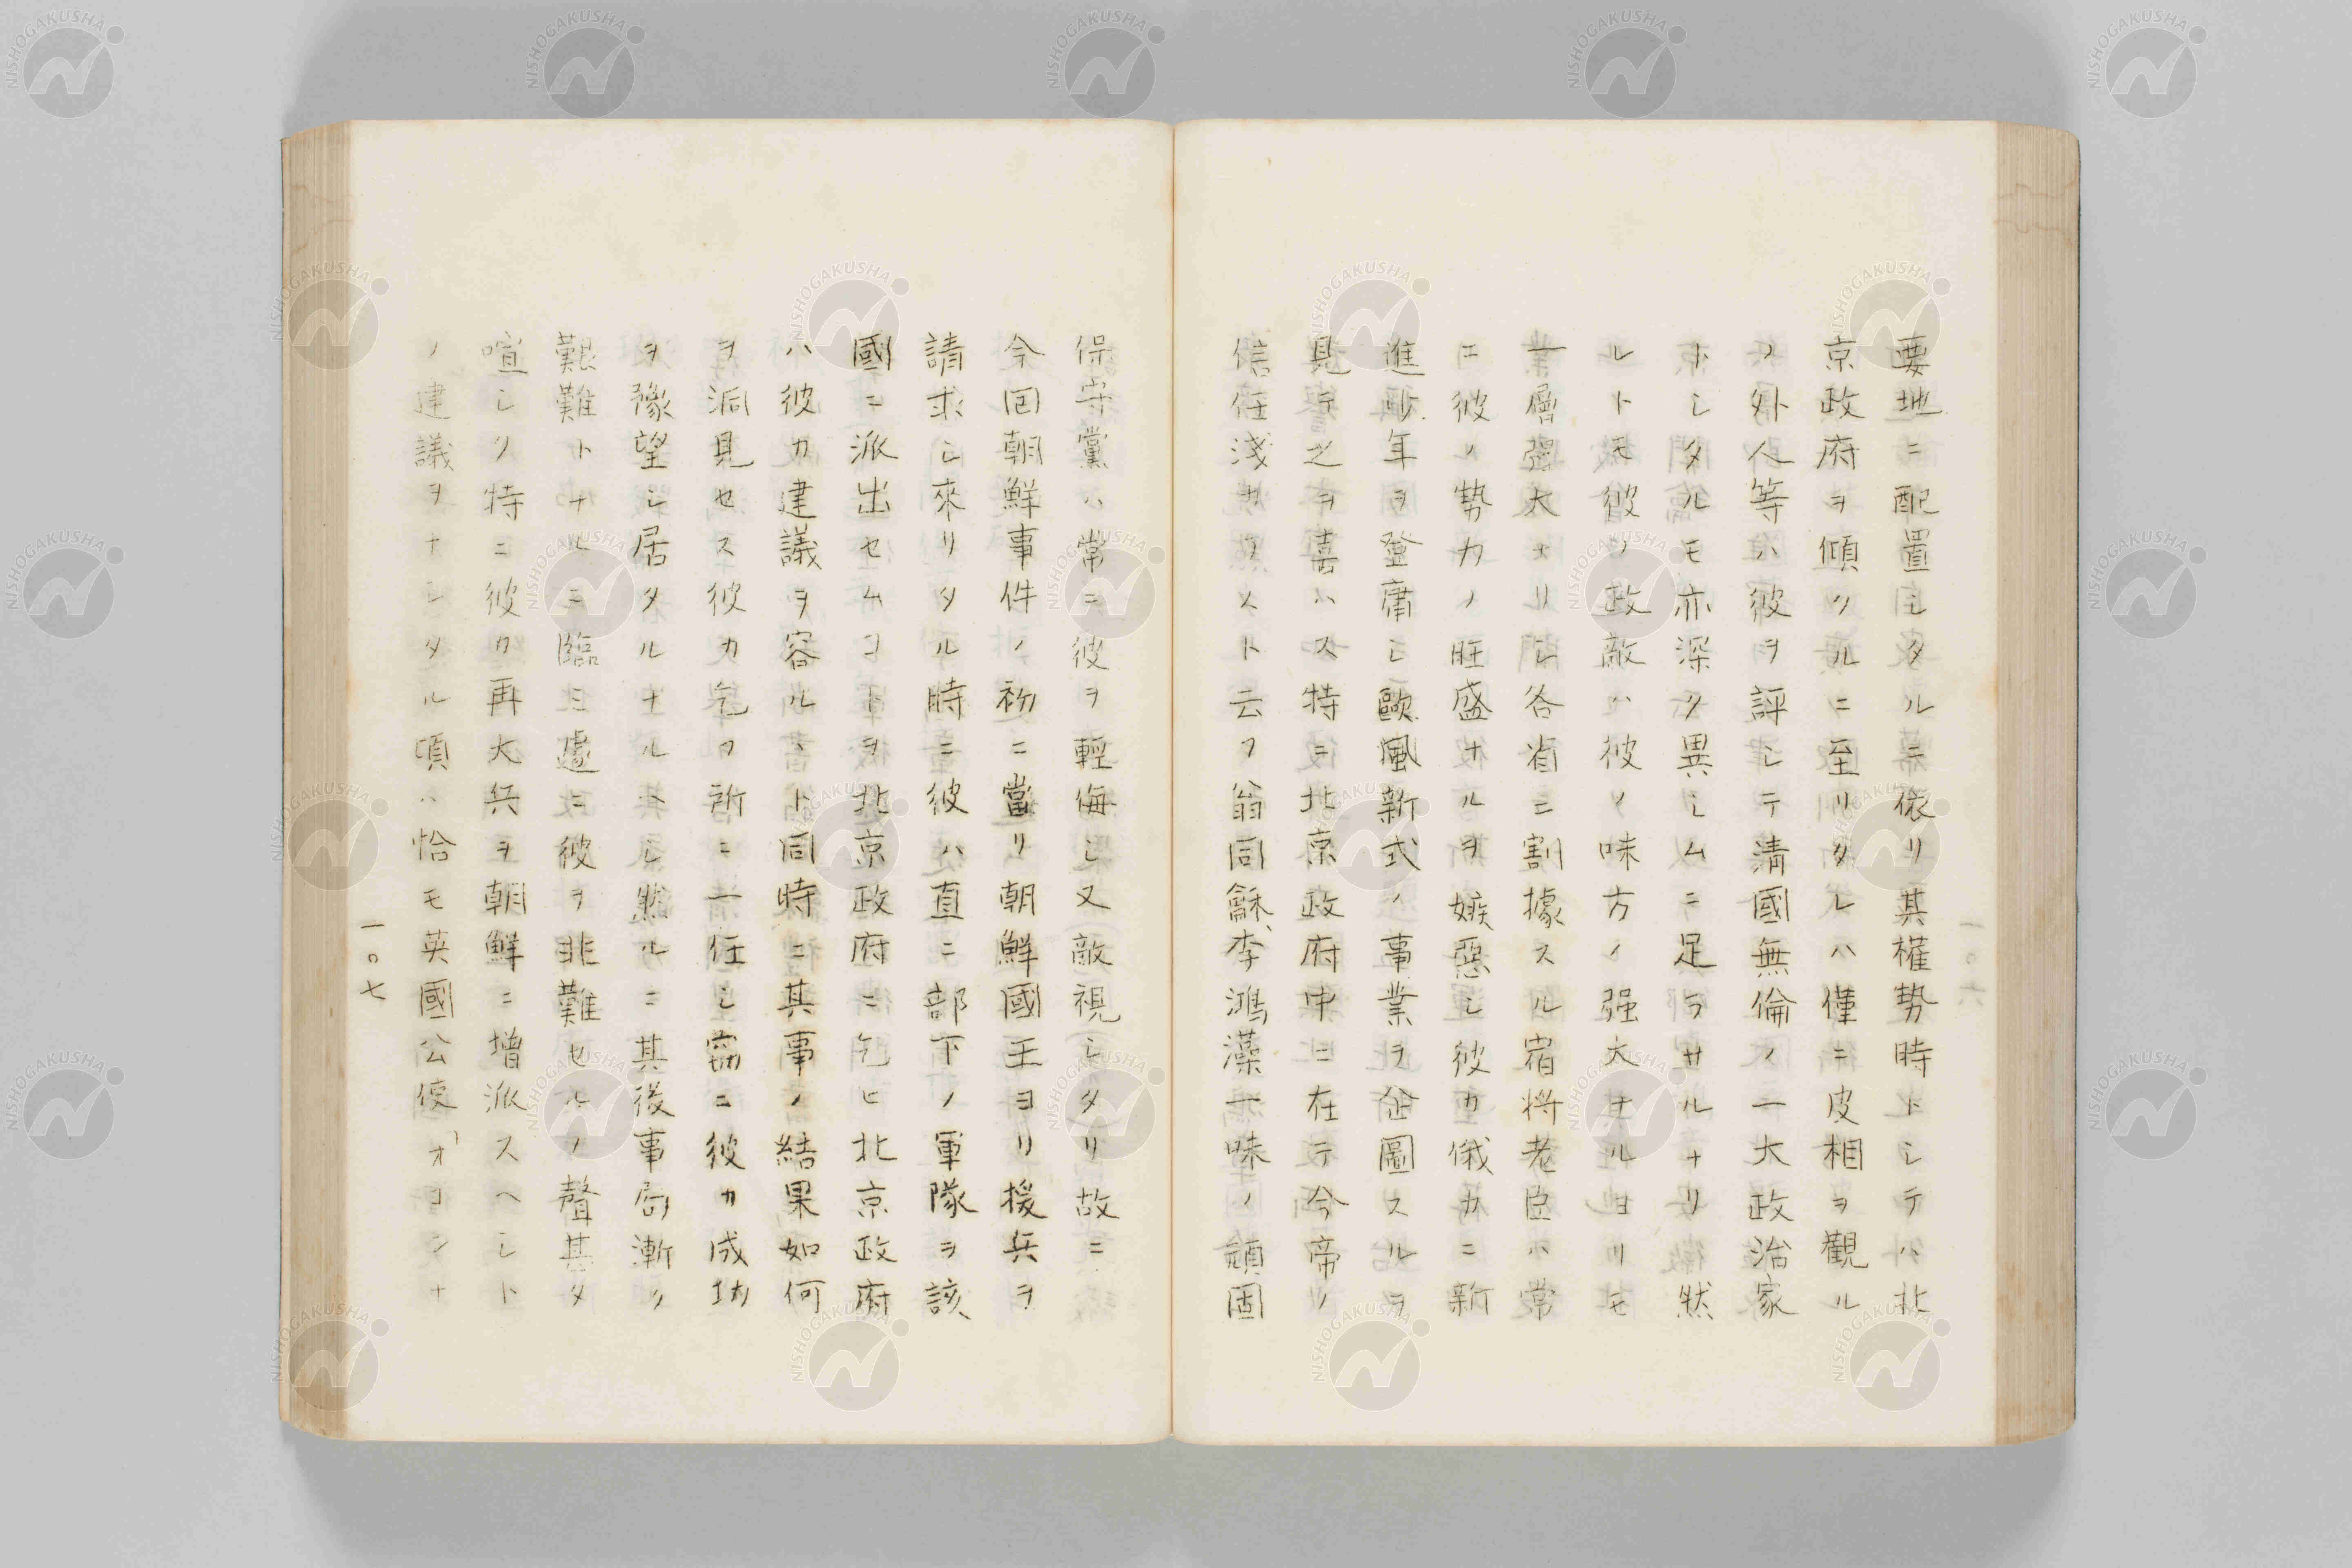 要地ニ配置シタルニ依リ其權勢時トシテハ北
京政府ヲ傾クルニ至リタレハ僅ニ皮相ヲ觀ル
ノ外人等ハ彼ヲ評シテ淸國無倫ノ一大政治家
トシタルモ亦深ク異シムニ足ラサルナリ然
レトモ彼ノ政敵ハ彼ノ味方ノ强大ナルヨリモ
一層强大ナリシ各省ニ割據スル宿將老臣ハ常
ニ彼ノ勢力ノ旺盛ナルヲ嫉惡シ彼カ俄カニ新
進少年ヲ登庸シ歐風新式ノ事業ヲ企圖スルヲ
見テ之ヲ喜ハス特ニ北京政府中ニ在テ今帝ノ
信任淺カラスト云フ翁同龢、李鴻藻一味ノ頑固
一〇六
保守黨ハ常ニ彼ヲ輕侮シ又敵視シタリ故ニ
今回朝鮮事件ノ初ニ當リ朝鮮國王ヨリ援兵ヲ
請求シ來リタル時ニ彼ハ直ニ部下ノ軍隊ヲ該
國ニ派出セムコトヲ北京政府ニ乞ヒ北京政府
ハ彼カ建議ヲ容ルヽト同時ニ其事ノ結果如何
ヲ洞見セス彼カ乞フ所ニ一任シ窃ニ彼カ成功
ヲ豫望シ居タルナルヘシ然ルニ其後事局漸ク
艱難トナルニ臨ミ遽ニ彼ヲ非難セルノ聲甚タ
喧シク特ニ彼カ再大兵ヲ朝鮮ニ增派スヘシト
ノ建議ヲナシタル頃ハ恰モ英國公使「オコンナ
一〇七
NISHOGAKUSHA